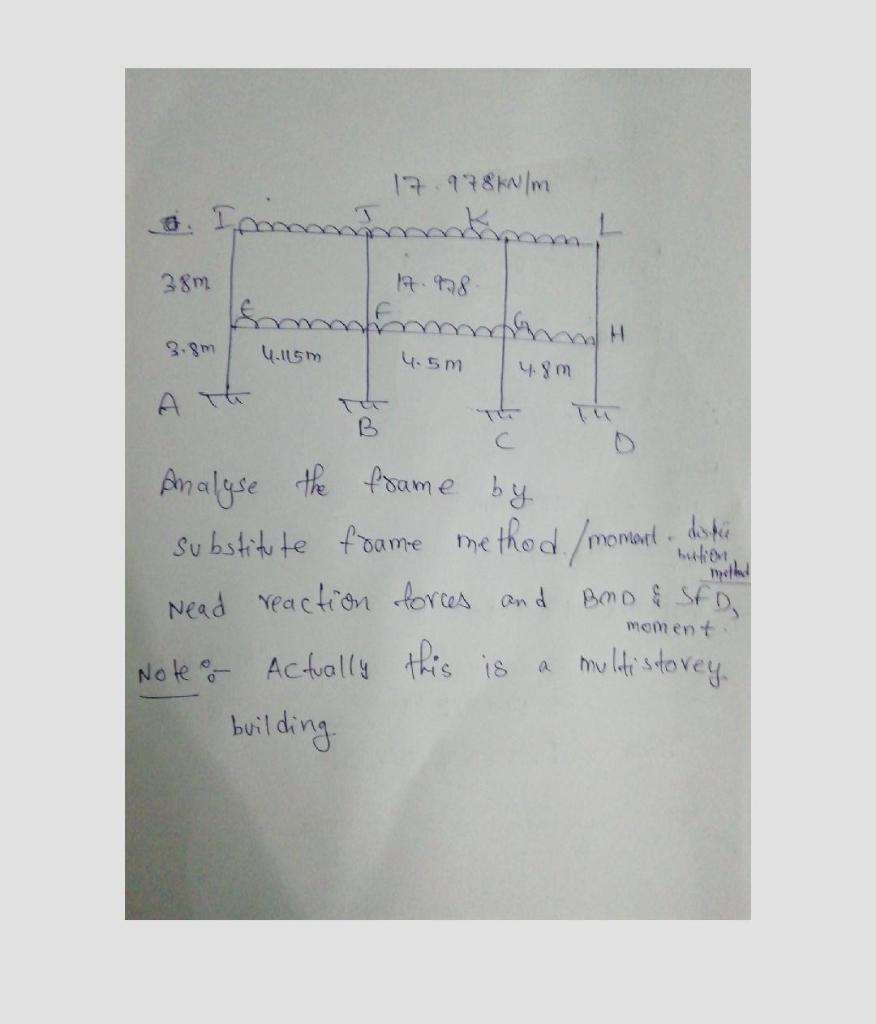 17.978kN/m
I J K L
3.8m 17.978
E F G H
3.8m 4.115m 4.5m 4.8m
A B C D
Analyse the frame by
substitute frame method./moment - distribution method
Nead reaction forces and BMD & SFD,
moment.
Note :- Actually this is a multistorey
building.